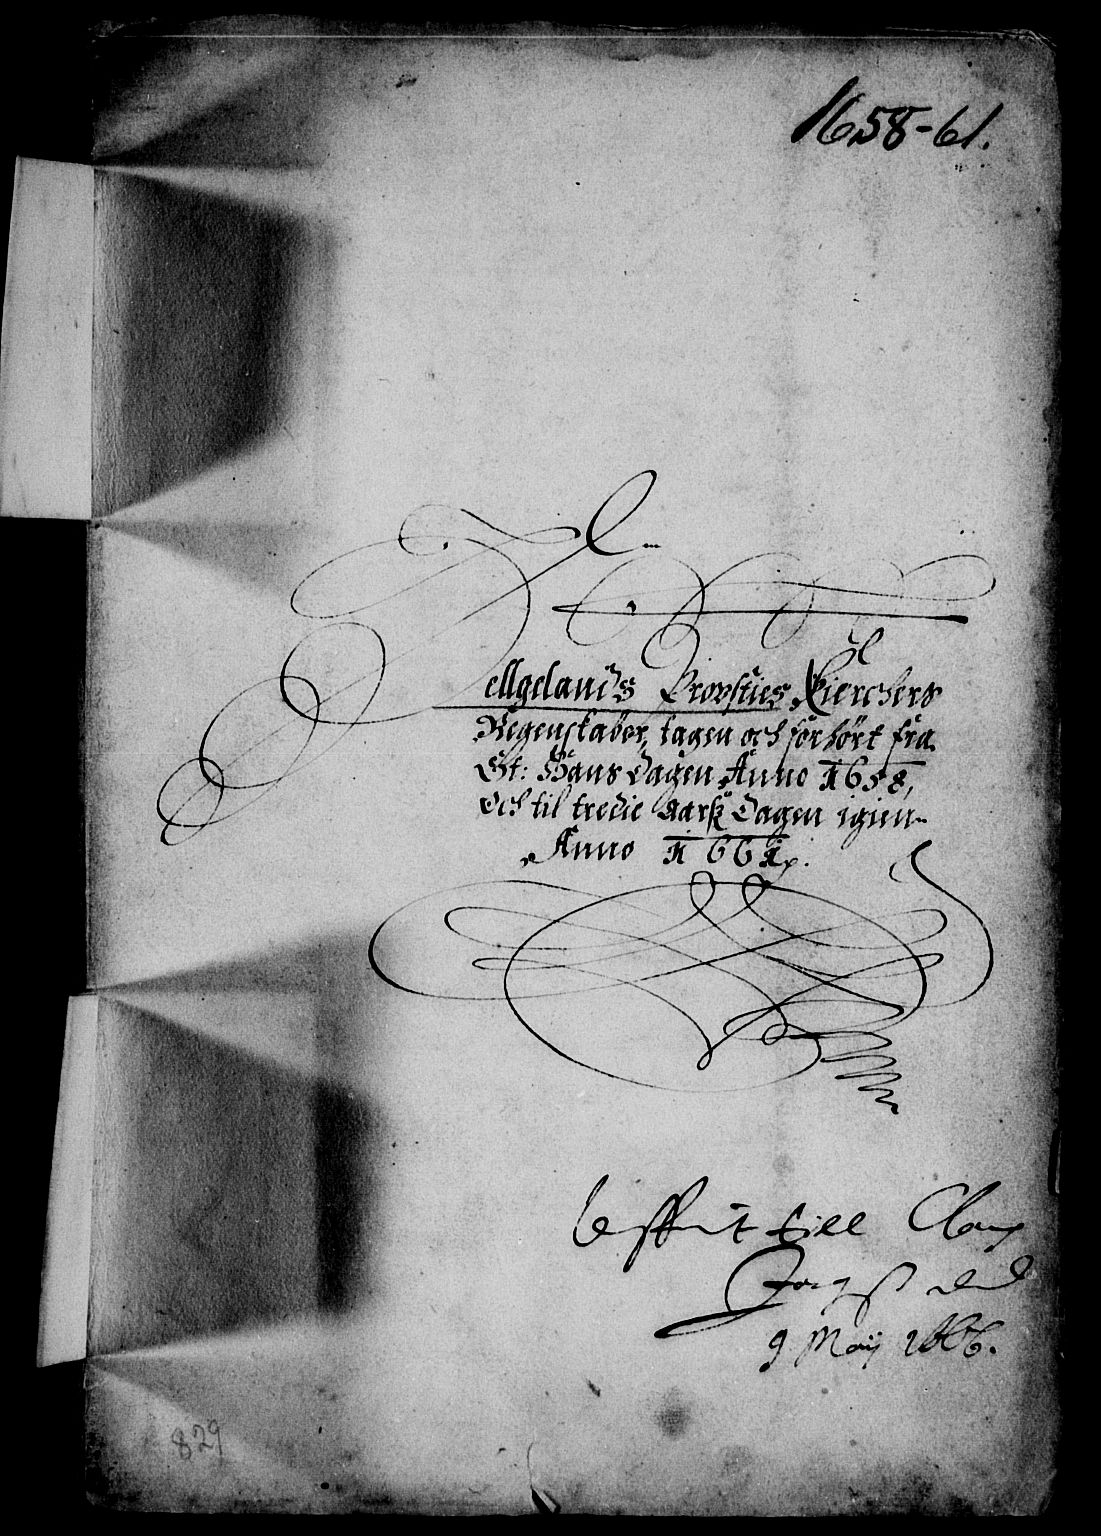 1658-61.
Hellgelands Provsties Kierckers
Regenskaber, tagen och forhört fra
St: Hans Dagen Anno 1658,
Och til tredie Aarsz Dagen igien
Anno 1661.
till Clauß
9 Maij 1666.
829